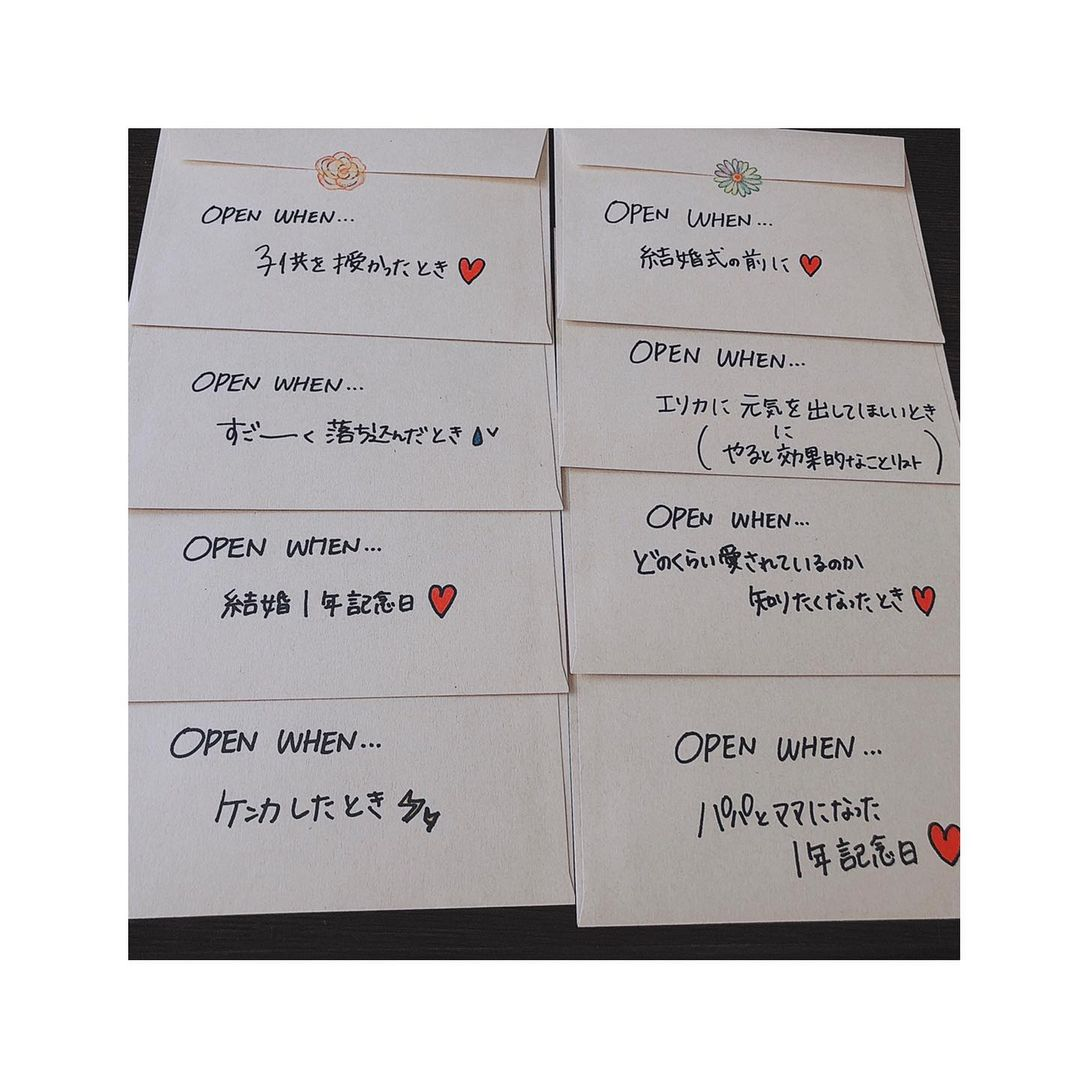 OPEN WHEN...
子供を授かったとき
OPEN WHEN...
すごーく落ち込んだとき
OPEN WHEN...
結婚1年記念日
OPEN WHEN...
ケンカしたとき
OPEN WHEN...
結婚式の前に
OPEN WHEN...
エリカに元気を出してほしいとき
に
(やると効果的なことリスト)
OPEN WHEN...
どのくらい愛されているのか
知りたくなったとき
OPEN WHEN...
パパとママになった
1年記念日